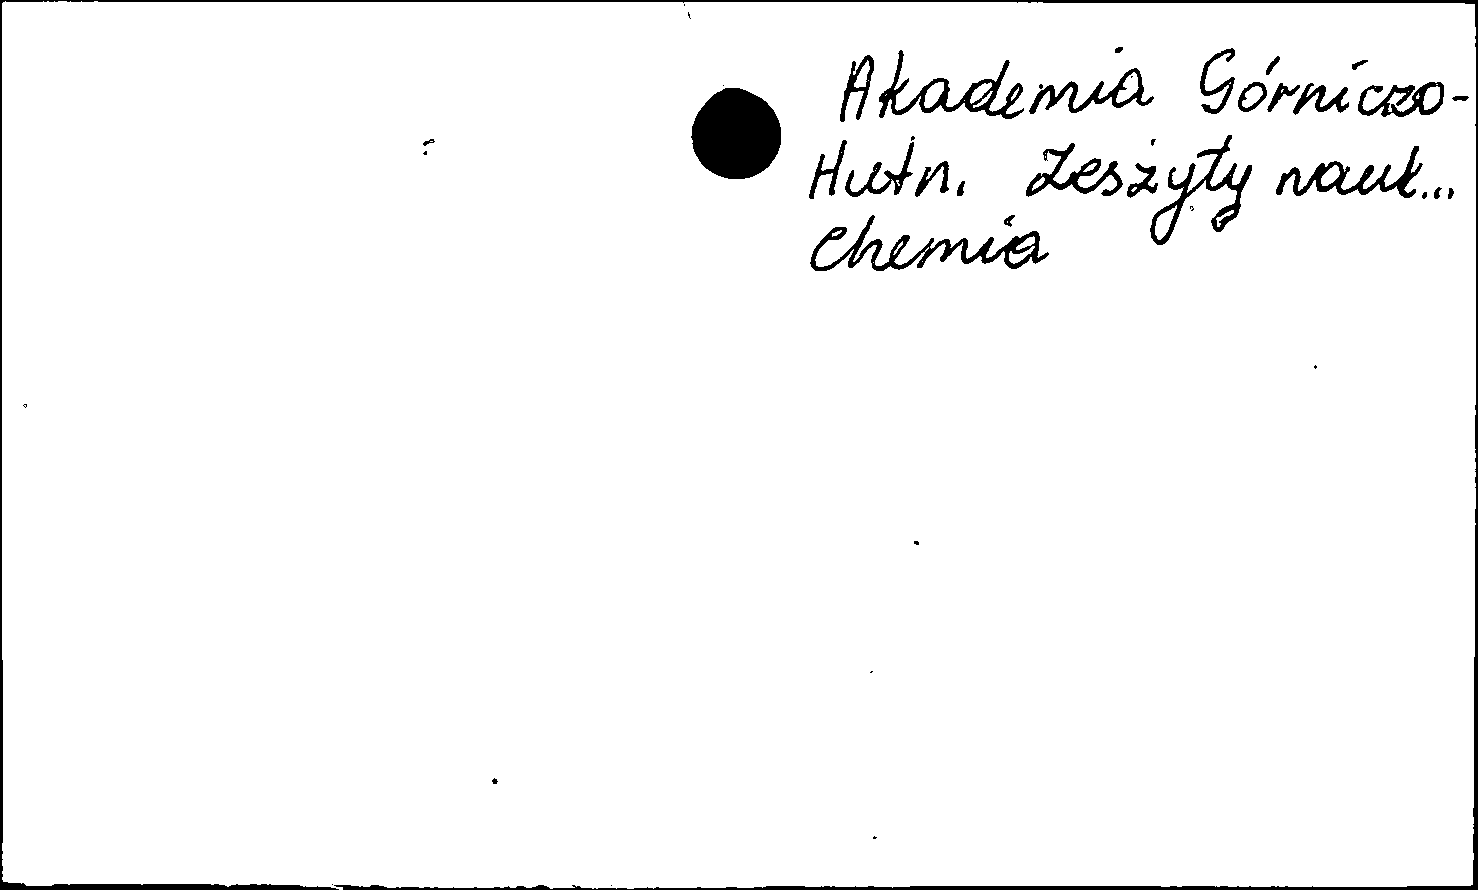 Akademia Górniczo-
Hutn. Zeszyty nauk...
Chemia